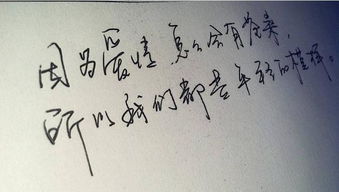 因为爱情 怎么会有沧桑,
所以我们都是年轻的模样。